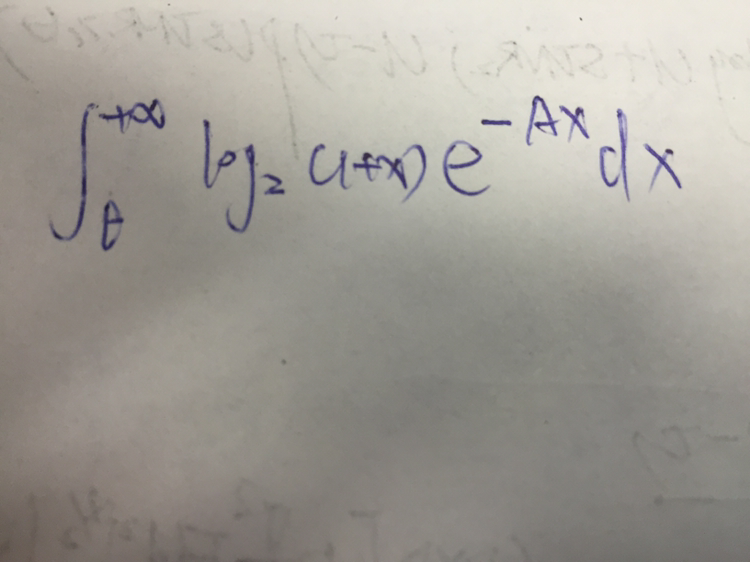 ∫_θ^{+∞} log₂(1+x) e^{-Ax} dx